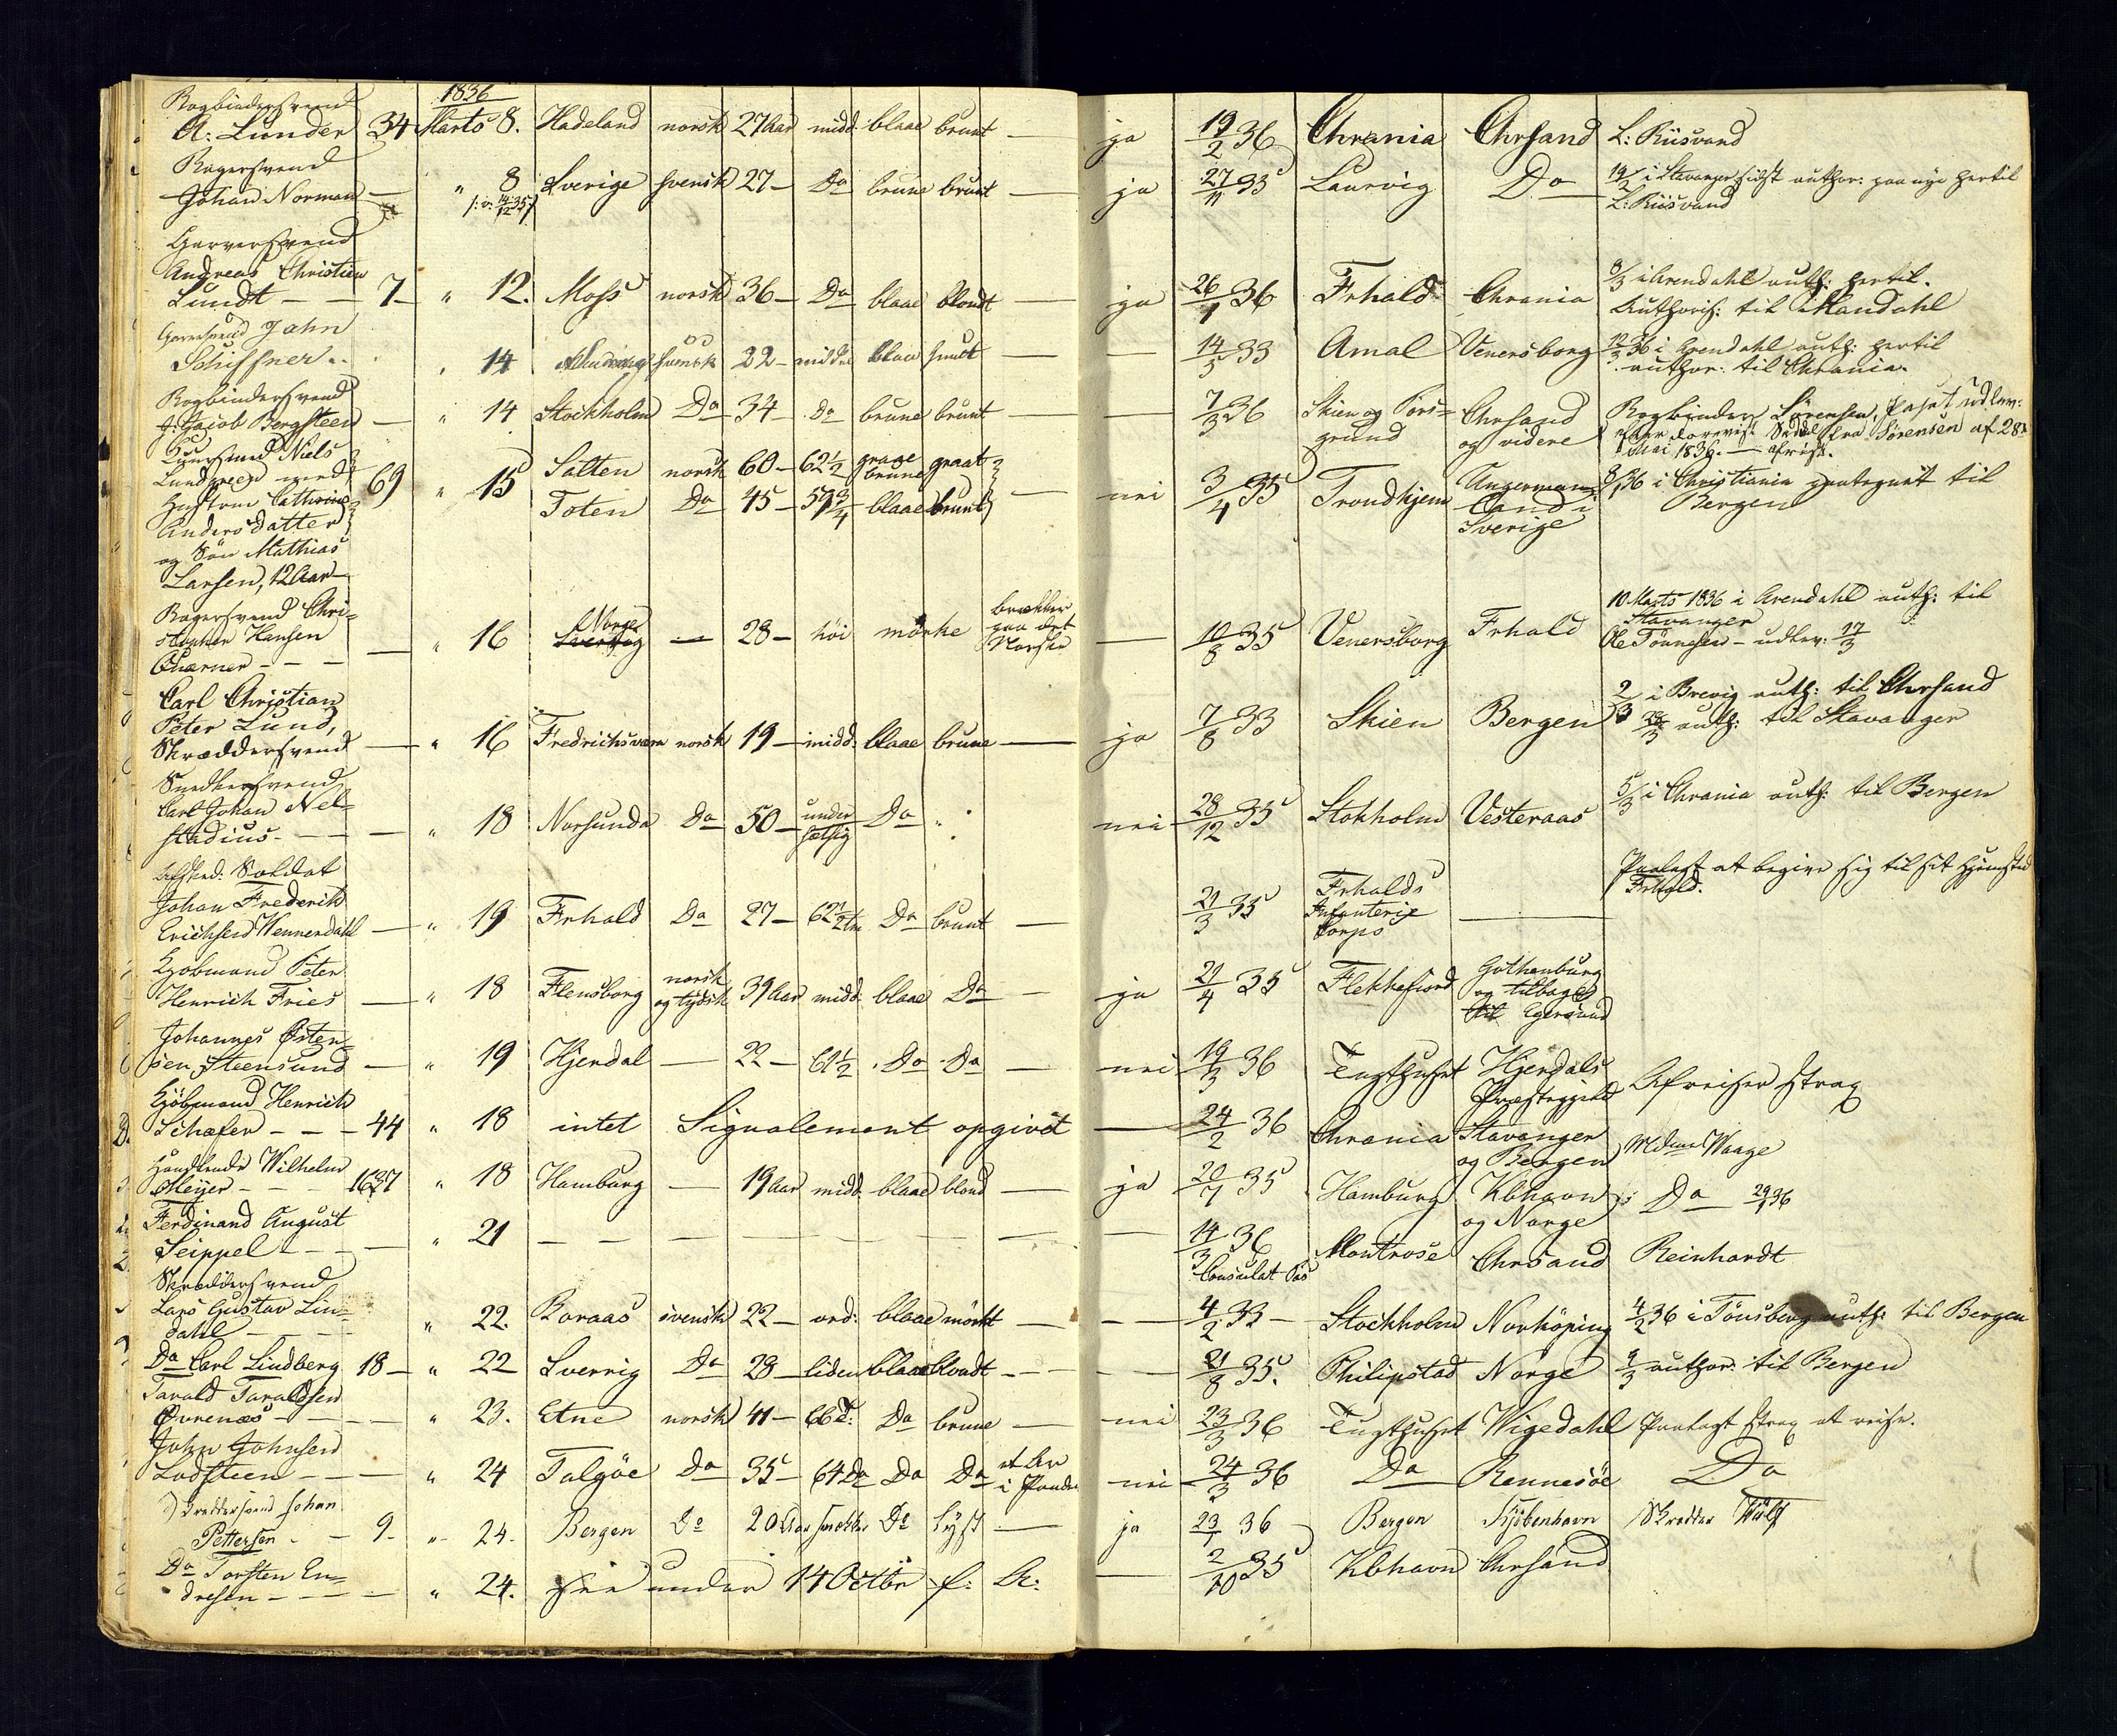 1836
Bogbindersvend
A: Lunder 34 Marts 8. Hadeland norsk 27 Aar midd: blaae brunt — ja 19/2 36 Chrania Chrsand L: Riisvand
Bagersvend
Johan Norman — " 8 Sverige svensk 27 — Do brune brunt — ja 27/11 35 Laurvig Do 19/2 i Stavanger sidst author: paa nye hertil
L: Riisvand
Garversvend
Andreas Christian
Lundt — — 7 — " 12. Moss norsk 36 — Do blaae blondt — ja 26/1 36 Frhald Chrania 8/3 i Arendahl auth: hertil.
Authoris: til Mandahl
Garversvend John
Schiffner " 14 svensk 22 — middel blaae — 14/3 33 Amal Venersborg 12/3 36 i Arendahl auth: hertil
author: til Chrania.
Bogbindersvend
J: Jacob Bergsteen — " 14 Stockholm Do 34 — Do brune brunt — — 7/3 36 Skien og Pors=
grund Chrsand
og videre Bogbinder Sörensen, Passet udlev:
Sedel fra Sörensen af 28de
Mai 1836. — afreist.
Niels
Lundgreen med
Hustrue Cathrine
Anders datter
og Sön Mathias
Larsen, 12 Aar — 69 " 15 Salten norsk 60 — 62 1/2 graae brune graat
Toten Do 45 — 59 3/4 blaae brunt — nei 3/4 35 Trondhjem Angerman=
land i
Sverige 8/1 36 i Christiania paategnet til
Bergen
Bagersvend Chri=
stopher Hansen
Quarner — — — " 16 Norge 28 — höi mörke brækker
paa det
Norske — 10/8 35 Venersborg Frhald 10 Marts 1836 i Arendahl auth: til
Stavanger
Ole Tönnesen — udlev: 17/3
Carl Christian
Peter Lund,
Skræddersvend — " 16 Fredrichsværn norsk 19 — midd: blaae brune — ja 7/8 33 Skien Bergen 2/3 i Brevig auth: til Chrsand
auth: til Stavanger
Snedkersvend
Carl Johan Nel=
stadius — — " 18 Norsunda Do 50 — under
sætsig Do " nei 28/12 35 Stokholm Vesteraas 5/3 i Chrania auth: til Bergen
Afsked: Soldat
Johan Frederik
Erichsen Wennerdahl — " 19 Frhald Do 27 — 62 1/2 tm Do brunt — 21/3 35 Frhalds
Infanterie
Corps — Paalagt at begive sig til sit Hjemsted
Frhald.
Kjöbmand Peter
Henrich Fries — " 18 Flensborg norsk
og tydsk 39 Aar midd. blaae Do — ja 21/4 35 Flekkefiord Gothenburg
og tilbage
til Egersund
Johannes Østen=
sen Steensund — " 19 Hjerdal — 22 — 61 1/2 Do Do — nei 19/3 36 Tugthuset Hjerdals
Præstegjeld Afreiser strax
Kjöbmand Henrich
Schæfer — — — 44 " 18 intet Signalement opgivet — 24/2 36 Chrania Stavanger
og Bergen Mdme Waage
Handlende Wilhelm
Meijer — — — 1637 " 18 Hamburg — 19 Aar midd blaae blond — ja 20/7 35 Hamburg Kbhavn
og Norge Do 29/1 36
Ferdinand August
Seippel — — " 21 — — — — — — — — 14/3 36
Consulat Pas Montrose Chrsand Reinhardt
Skræddersvend
Lars Gustav Lin=
dahl — — " 22. Boraas svensk 22 — ord: blaae mörkt — — 4/2 33 — Stockholm Norköping 4/2 36 i Tönsberg auth: til Bergen
Do Carl Lindberg 18 — " 22 Sverrig Do 28 — liden blaae blondt — — 21/8 35. Philipstad Norge 9/3 author: til Bergen
Tarald Taraldsen
Øvrenæs — — — " 23. Etne norsk 41 — 66 T: Do brune — nei 23/3 36 Tugthuset Wigedahl Paalagt strax at reise.
John Johnsen
Lodsteen — — — " 24 Talgöe Do 35 — 64 Do Do Do et Ar
i Panden nei 24/3 36 Do Rennesöe Do
Skreddersvend Johan
Pettersen — — 9. " 24. Bergen Do 20 Aar smækker Do lyst — ja 23/1 36 Bergen Kjöbenhavn Skredder Wulf
Do Torsten En=
dresen — — — " 24. see under 14 Octbr f: A: — 2/10 35 Kbhavn Chrsand